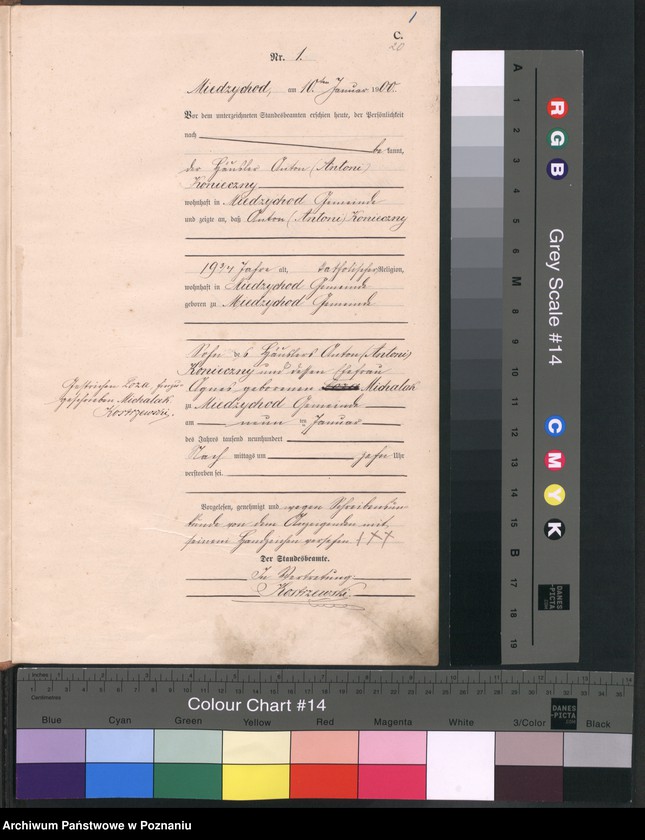 1
C.
20
Nr. 1.
Miedzychod, am 10ten Januar 1900.
Vor dem unterzeichneten Standesbeamten erschien heute, der Persönlichkeit
nach
be kannt,
der Häusler Anton (Antoni)
Konieczny
wohnhaft in Miedzychod Gemeinde
und zeigte an, daß Anton (Antoni) Konieczny
Jahre alt, katholischer Religion,
wohnhaft in Miedzychod Gemeinde
geboren zu Miedzychod Gemeinde
Sohn des Häuslers Anton (Antoni)
Konieczny und dessen Ehefrau
Agnes geborenen Michalak
Gestrichen Loza, hinzu-
geschrieben Michalak.
Kostrzewski.
zu Miedzychod Gemeinde
am neun ten Januar
des Jahres tausend neunhundert
Nach mittags um zehn Uhr
verstorben sei.
Vorgelesen, genehmigt und wegen Schreibensun-
kunde von dem Anzeigenden mit
seinem Handzeichen versehen +++
Der Standesbeamte.
In Vertretung
Kostrzewski.
A
1
2
3
4
5
6
M
8
9
10
11
12
13
14
15
B
17
18
19
R
G
B
Grey Scale #14
C
M
Y
K
DANES
-PICTA
.COM
Inches
Centimetres
Colour Chart #14
DANES
-PICTA
.COM
Blue
Cyan
Green
Yellow
Red
Magenta
White
3/Color
Black
Archiwum Państwowe w Poznaniu